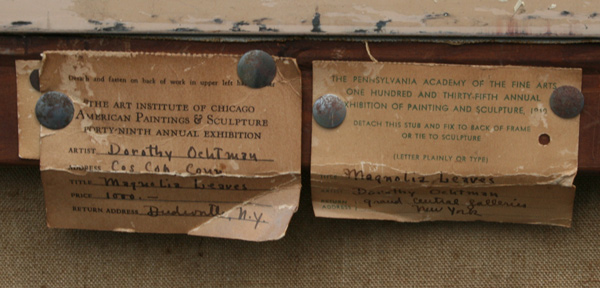 Detach and fasten on back of work in upper left hand
THE ART INSTITUTE OF CHICAGO
AMERICAN PAINTINGS & SCULPTURE
FORTY-NINTH ANNUAL EXHIBITION
ARTIST Dorothy Ochtman
ADDRESS Cos Cob, Conn
TITLE Magnolia Leaves
PRICE 1000.—
RETURN ADDRESS N.Y.
THE PENNSYLVANIA ACADEMY OF THE FINE ARTS
ONE HUNDRED AND THIRTY-FIFTH ANNUAL
EXHIBITION OF PAINTING AND SCULPTURE,
DETACH THIS STUB AND FIX TO BACK OF FRAME
OR TIE TO SCULPTURE
(LETTER PLAINLY OR TYPE)
TITLE Magnolia Leaves
Dorothy Ochtman
RETURN ADDRESS Grand Central Galleries
New York